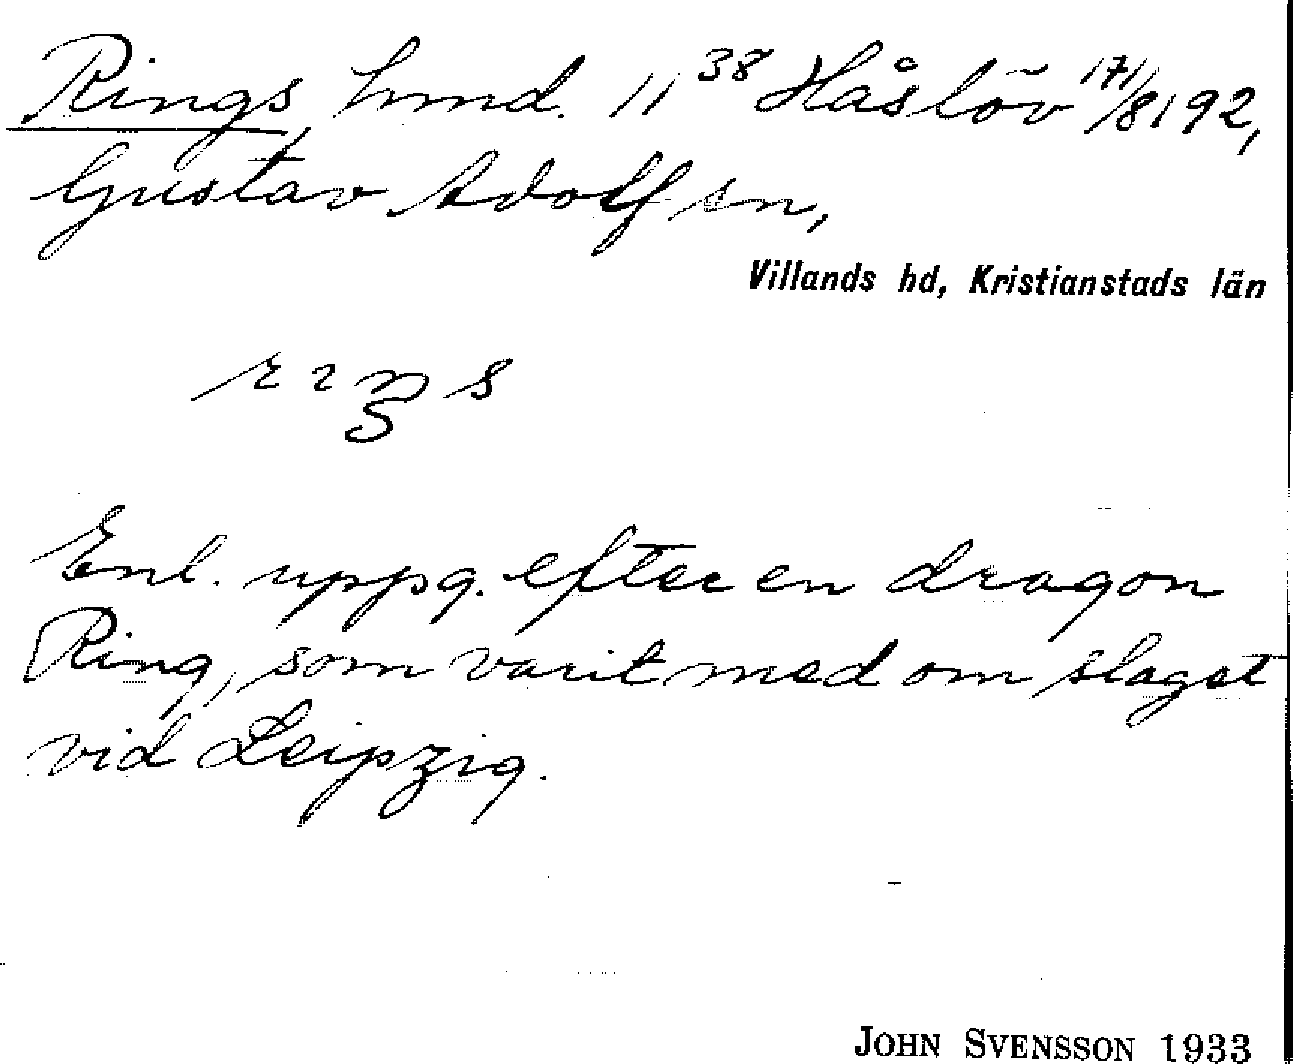 Rings, hmd. 11³⁸ Håslöv ¹⁷¹/8192,
Gustav Adolf sn,
Villands hd, Kristianstads län
rıŋs
Enl. uppg. efter en dragon
Ring, som varit med om slaget
vid Leipzig.
JOHN SVENSSON 1933